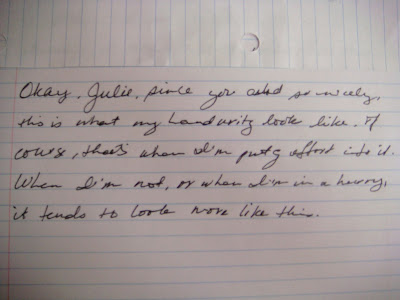 Okay, Julie, since you asked so nicely,
this is what my handwriting looks like. Of
course, that's when I'm putting effort into it.
When I'm not, or when I'm in a hurry,
it tends to look more like this.